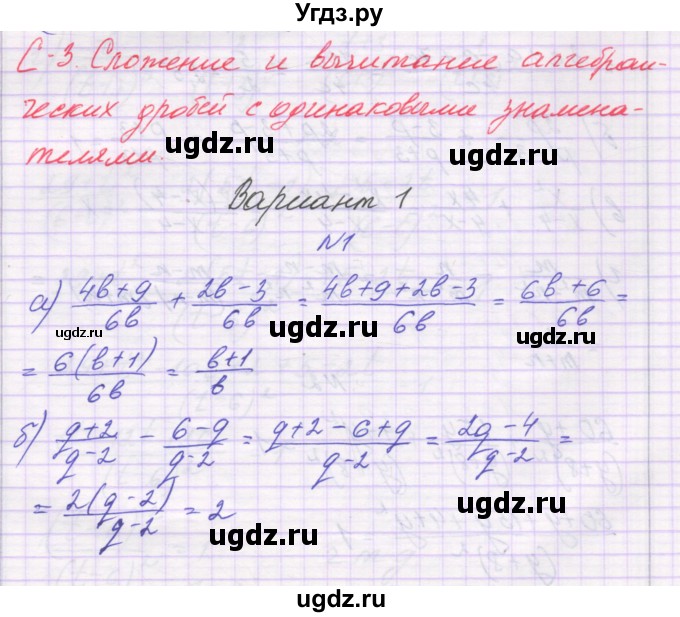 Угдз.ру
С-3. Сложение и вычитание алгебраи-
ческих дробей с одинаковыми знамена-
телями.
ugdz.ru ugdz.ru
Вариант 1
N1
а) (4b+9)/(6b) + (2b-3)/(6b) = (4b+9+2b-3)/(6b) = (6b+6)/(6b) =
ugdz.ru ugdz.ru ugdz.ru
= (6(b+1))/(6b) = (b+1)/b
б) (q+2)/(q-2) - (6-q)/(q-2) = (q+2-6+q)/(q-2) = (2q-4)/(q-2) =
ugdz.ru ugdz.ru
= (2(q-2))/(q-2) = 2
ugdz.ru
ugdz.ru